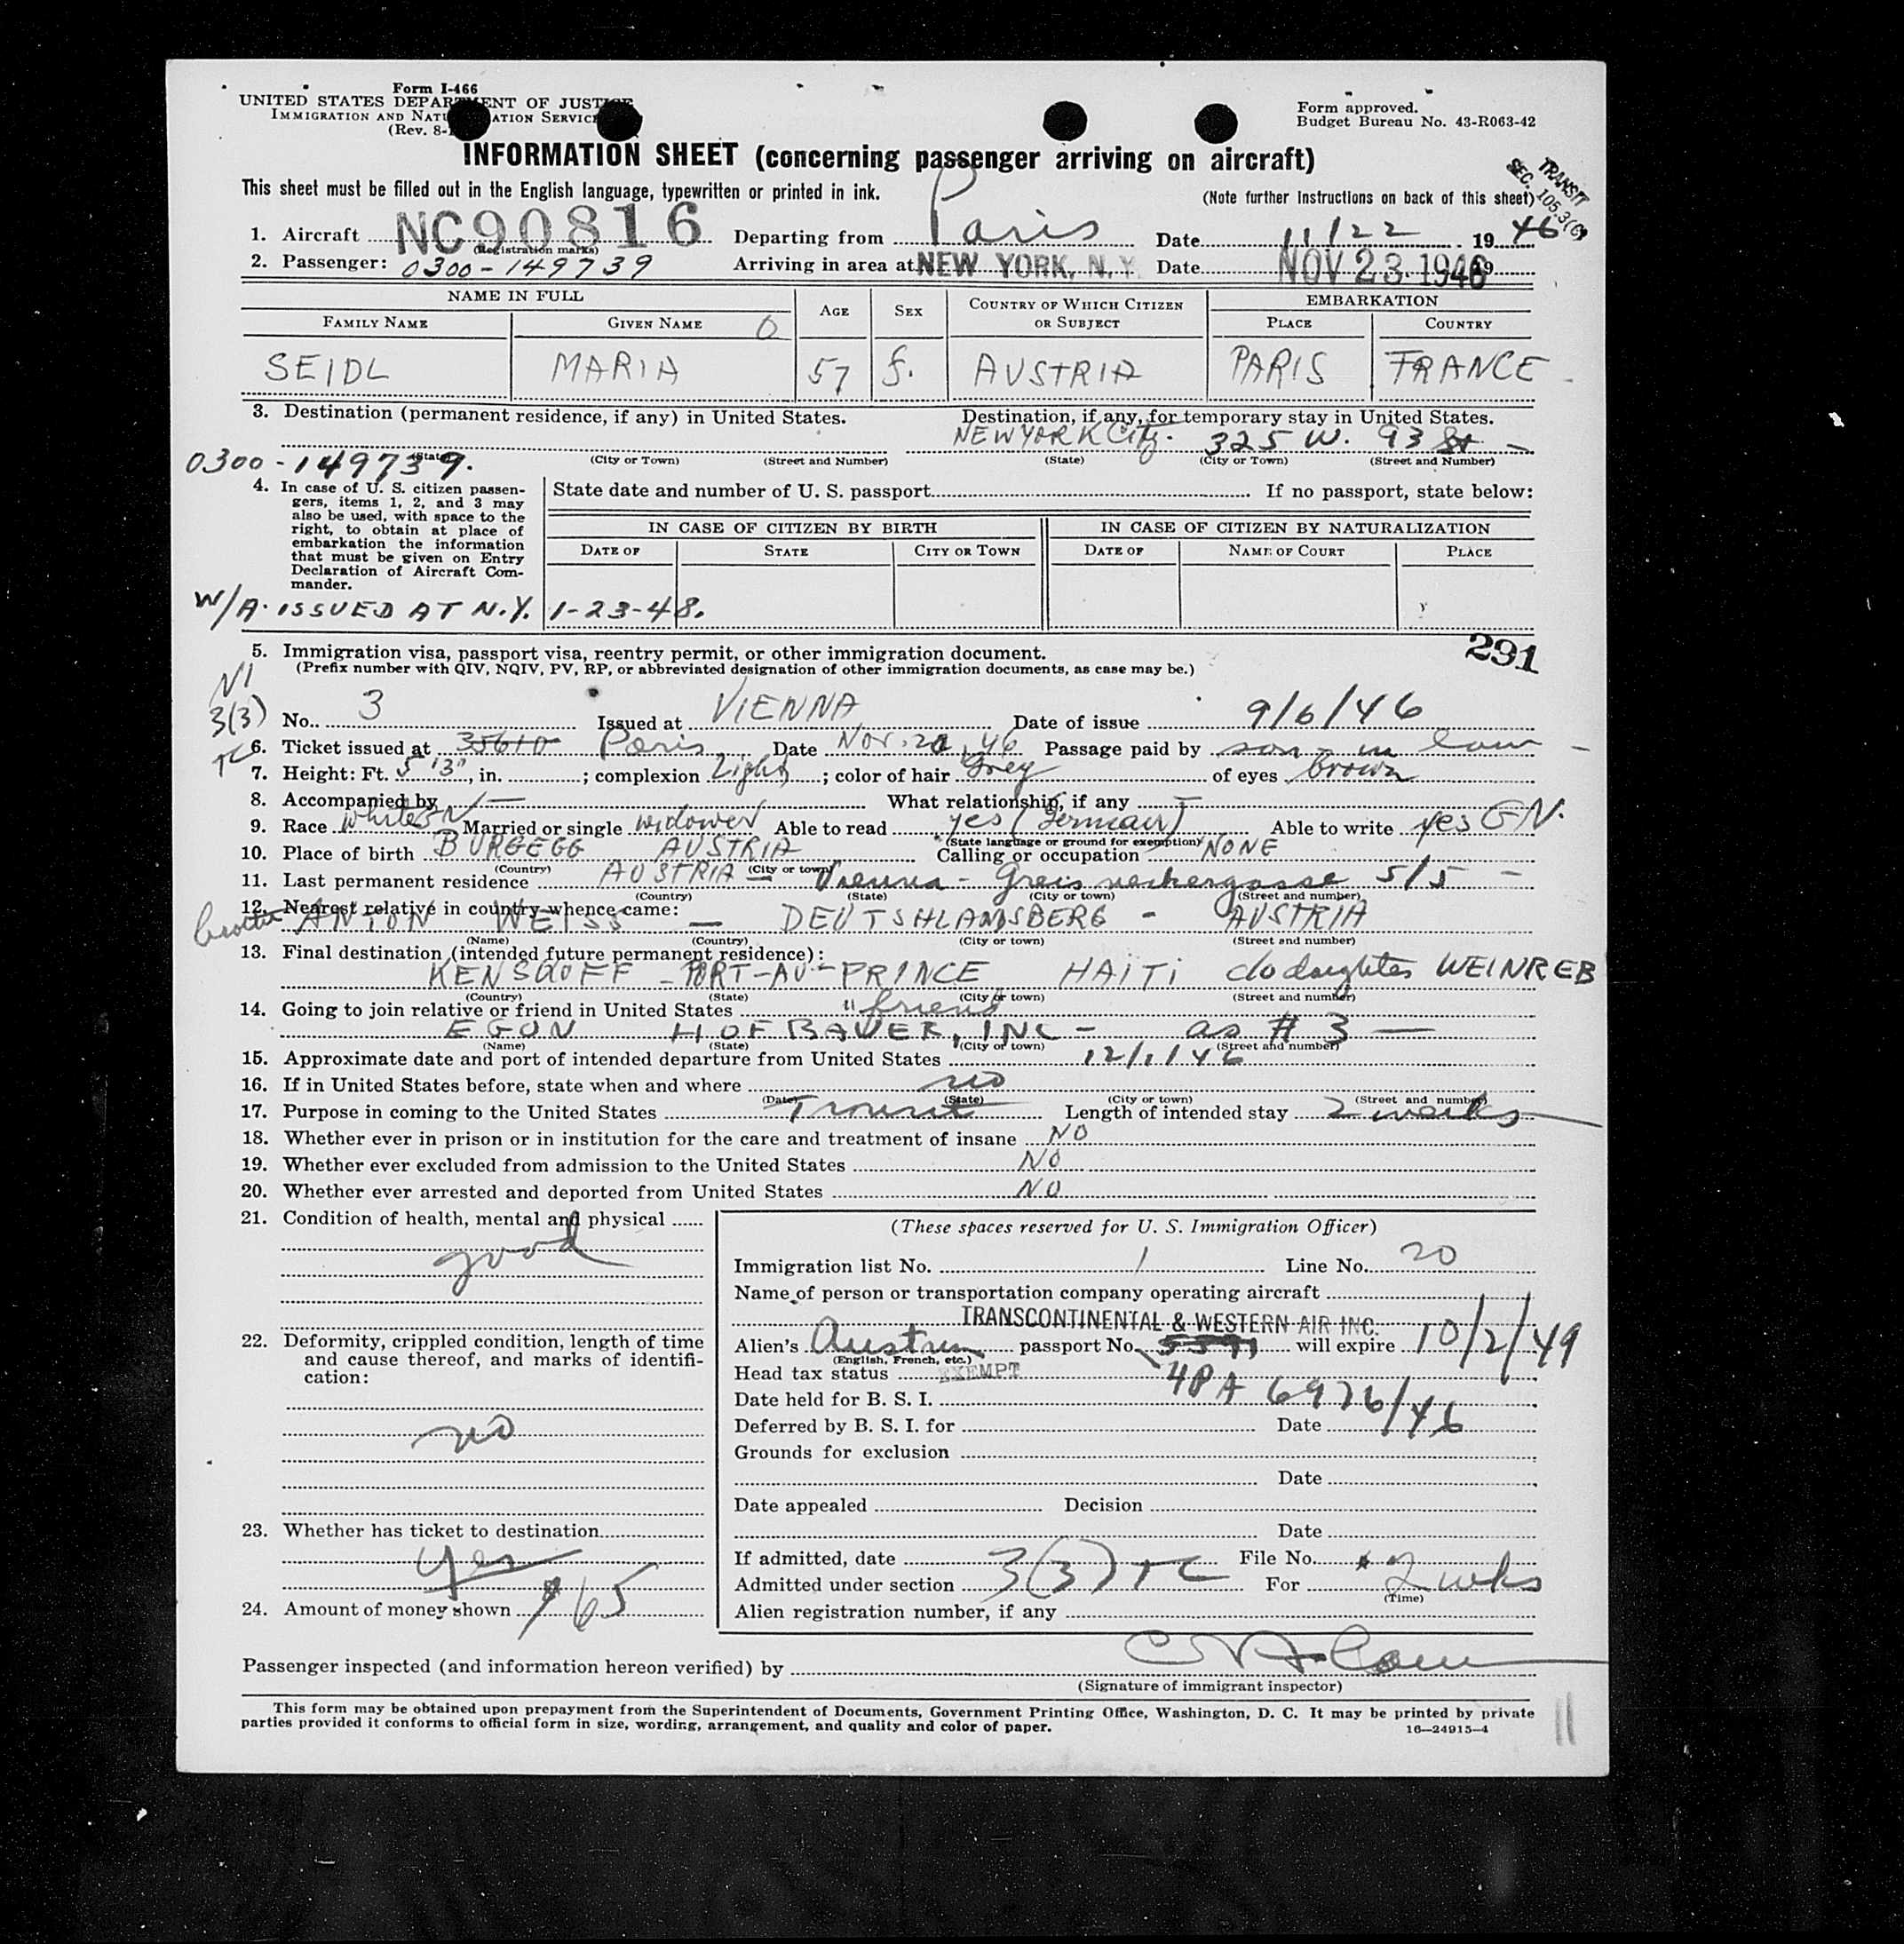 Form I-466
UNITED STATES DEPARTMENT OF JUSTICE
IMMIGRATION AND NATURALIZATION SERVICE
(Rev. 8-
Form approved.
Budget Bureau No. 43-R063-42
INFORMATION SHEET (concerning passenger arriving on aircraft)
TRANSIT
SEC. 105.3(6)
This sheet must be filled out in the English language, typewritten or printed in ink. (Note further instructions on back of this sheet)
1. Aircraft NC90816 Departing from Paris Date 11/22 1946
(Registration marks)
2. Passenger: 0300-149739 Arriving in area at NEW YORK, N.Y. Date NOV 23 1946 19
NAME IN FULL AGE SEX COUNTRY OF WHICH CITIZEN OR SUBJECT EMBARKATION
FAMILY NAME GIVEN NAME O PLACE COUNTRY
SEIDL MARIA 57 f. AUSTRIA PARIS FRANCE
3. Destination (permanent residence, if any) in United States. Destination, if any, for temporary stay in United States.
NEW YORK City. 325 W. 93 St
0300-149739.
(State) (City or Town) (Street and Number) (State) (City or Town) (Street and Number)
4. In case of U. S. citizen passen-
gers, items 1, 2, and 3 may
also be used, with space to the
right, to obtain at place of
embarkation the information
that must be given on Entry
Declaration of Aircraft Com-
mander.
State date and number of U. S. passport If no passport, state below:
IN CASE OF CITIZEN BY BIRTH IN CASE OF CITIZEN BY NATURALIZATION
DATE OF STATE CITY OR TOWN DATE OF NAME OF COURT PLACE
W/A. ISSUED AT N.Y. 1-23-48.
291
5. Immigration visa, passport visa, reentry permit, or other immigration document.
(Prefix number with QIV, NQIV, PV, RP, or abbreviated designation of other immigration documents, as case may be.)
VI
3(3) No. 3 Issued at VIENNA Date of issue 9/6/46
TC
6. Ticket issued at 35610 Paris Date Nov. 46 Passage paid by son-in law
7. Height: Ft. 5'3", in. ; complexion Light ; color of hair Grey of eyes brown
8. Accompanied by — What relationship, if any —
9. Race white Married or single widower Able to read yes (German) Able to write yes GN.
(State language or ground for exemption)
10. Place of birth BURGEGG AUSTRIA Calling or occupation NONE
(Country) (City or town)
11. Last permanent residence AUSTRIA — Vienna - 5/5 —
(Country) (State) (City or town) (Street and number)
12. Nearest relative in country whence came:
brother ANTON WEISS — DEUTSHLANDSBERG - AUSTRIA
(Name) (Country) (City or town) (Street and number)
13. Final destination (intended future permanent residence):
KENSQOFF - PORT-AU-PRINCE HAITI c/o daughter WEINREB
(Country) (State) (City or town) (Street and number)
14. Going to join relative or friend in United States "friend
EGON HOFBAUER, INC - as # 3 —
(Name) (State) (City or town) (Street and number)
15. Approximate date and port of intended departure from United States 12/1/46
16. If in United States before, state when and where no
(Date) (State) (City or town) (Street and number)
17. Purpose in coming to the United States Transit Length of intended stay 2 weeks
18. Whether ever in prison or in institution for the care and treatment of insane NO
19. Whether ever excluded from admission to the United States NO
20. Whether ever arrested and deported from United States NO
21. Condition of health, mental and physical
good
22. Deformity, crippled condition, length of time
and cause thereof, and marks of identifi-
cation:
no
23. Whether has ticket to destination
yes
24. Amount of money shown $65
(These spaces reserved for U. S. Immigration Officer)
Immigration list No. 1 Line No. 20
Name of person or transportation company operating aircraft
TRANSCONTINENTAL & WESTERN AIR INC.
Alien's Austrian passport No. will expire 10/2/49
(English, French, etc.)
Head tax status EXEMPT 4PA 6976/46
Date held for B. S. I.
Deferred by B. S. I. for Date
Grounds for exclusion
Date
Date appealed Decision
Date
If admitted, date File No.
Admitted under section 3(3) TC For 2 wks
(Time)
Alien registration number, if any
Passenger inspected (and information hereon verified) by
(Signature of immigrant inspector)
This form may be obtained upon prepayment from the Superintendent of Documents, Government Printing Office, Washington, D. C. It may be printed by private
parties provided it conforms to official form in size, wording, arrangement, and quality and color of paper. 16—24915-4
11